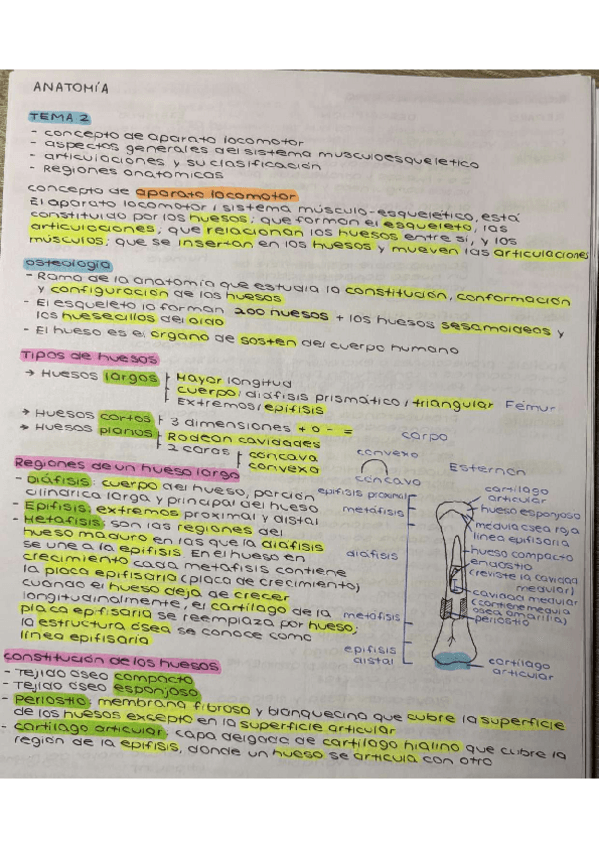 ANATOMÍA
TEMA 2
- concepto de aparato locomotor
- aspectos generales del sistema musculoesqueletico
- articulaciones y su clasificación
- Regiones anatomicas
concepto de aparato locomotor
El aparato locomotor i sistema músculo-esquelético, está
constituido por los huesos; que forman el esqueleto, las
articulaciones; que relacionan los huesos entre si, y los
músculos; que se insertan en los huesos y mueven las articulaciones
osteologia
- Rama de la anatomia que estudia la constitución, conformación
y configuración de los huesos
- El esqueleto lo forman 200 huesos + los huesos sesamoideos y
los huesecillos del oido
- El hueso es el organo de sosten del cuerpo humano
Tipos de huesos
→ Huesos largos
Mayor longitud
cuerpo / diáfisis prismático / triangular Fémur
Extremos / epifisis
→ Huesos cortos 3 dimensiones + o - =
carpo
→ Huesos planos
Rodean cavidades
2 caras
concava
convexa
convexo
concavo
Esternon
Regiones de un hueso largo
- Diáfisis: cuerpo del hueso, porción
cilindrica larga y principal del hueso
- Epifisis: extremos proximal y distal
- Metáfisis: son las regiones del
hueso maduro en las que la diafisis
se une a la epifisis. En el hueso en
crecimiento cada metáfisis contiene
la placa epifisaria (placa de crecimiento)
cuando el hueso deja de crecer
longitudinalmente, el cartilago de la
placa epifisaria se reemplaza por hueso;
la estructura ósea se conoce como
linea epifisaria
epifisis proximal
metáfisis
diáfisis
metáfisis
epifisis
distal
cartilago
articular
hueso esponjoso
medula osea roja
linea epifisaria
hueso compacto
endostio
(reviste la cavidad
medular)
cavidad medular
(contiene medula
osea amarilla)
periostio
cartilago
articular
constitución de los huesos
- Tejido oseo compacto
- Tejido oseo esponjoso
- Periostio: membrana fibrosa y blanquecina que cubre la superficie
de los huesos excepto en la superficie articular
- cartilago articular: capa delgada de cartilago hialino que cubre la
región de la epifisis, donde un hueso se articula con otro